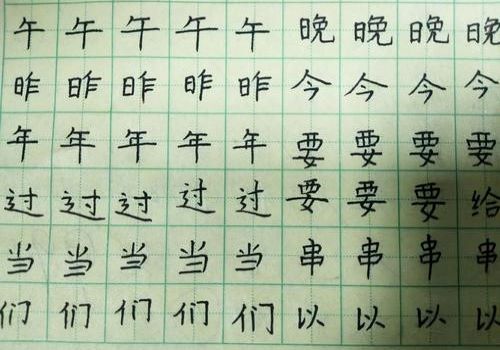 午午午午午晚晚晚晚
昨昨昨昨昨今今今今
年年年年年要要要要
过过过过过要要要给
当当当当当串串串串
们们们们们以以以以